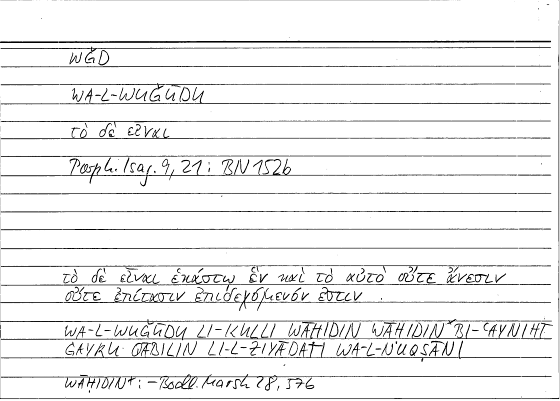 WǦD
WA-L-WUǦŪDU
τὸ δὲ εἶναι
Porph. Isag. 9, 21: BN 152b
τὸ δὲ εἶναι ἑκάστῳ ἓν καὶ τὸ αὐτὸ οὔτε ἄνεσιν
οὔτε ἐπίτασιν ἐπιδεχόμενόν ἐστιν .
WA-L-WUǦŪDU LI-KULLI WĀḤIDIN WĀḤIDIN⁺ BI-ʿAYNIHĪ
ĠAYRU QĀBILIN LI-L-ZIYĀDATI WA-L-NUQṢĀNI
WĀḤIDIN⁺: – Bodl. Marsh 28, 57b